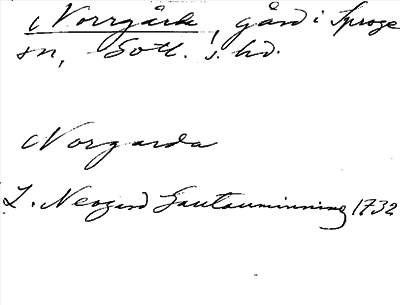 Norrgårde, gård i Sproge
sn, Gotl. s. hd.
Norgarda
L. Neogard Gautauminning 1732